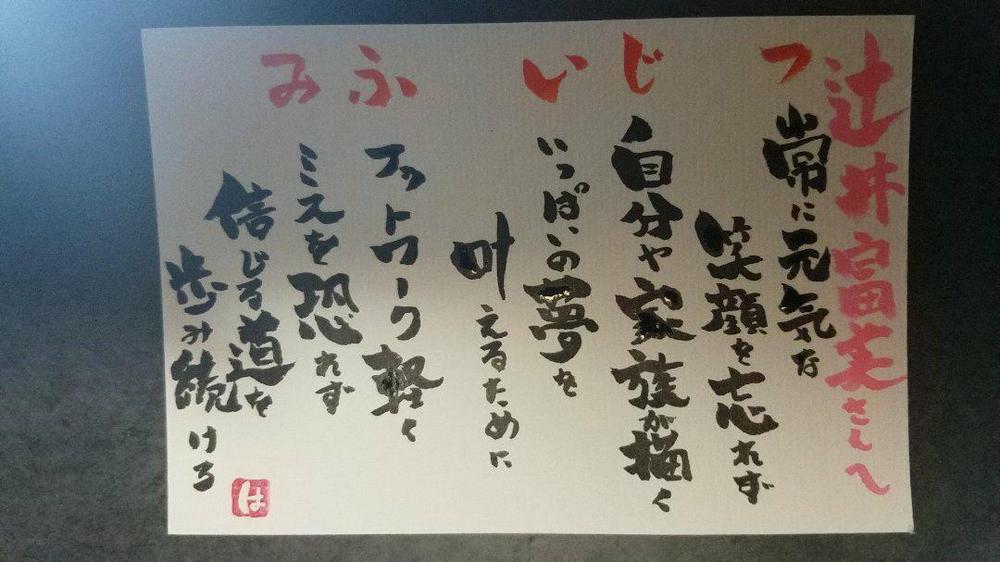 辻井富美さんへ
つ
常に元気な
笑顔を忘れず
じ
自分や家族が描く
い
いっぱいの夢を
叶えるために
ふ
フットワーク軽く
み
ミスを恐れず
信じる道を
歩み続ける
は